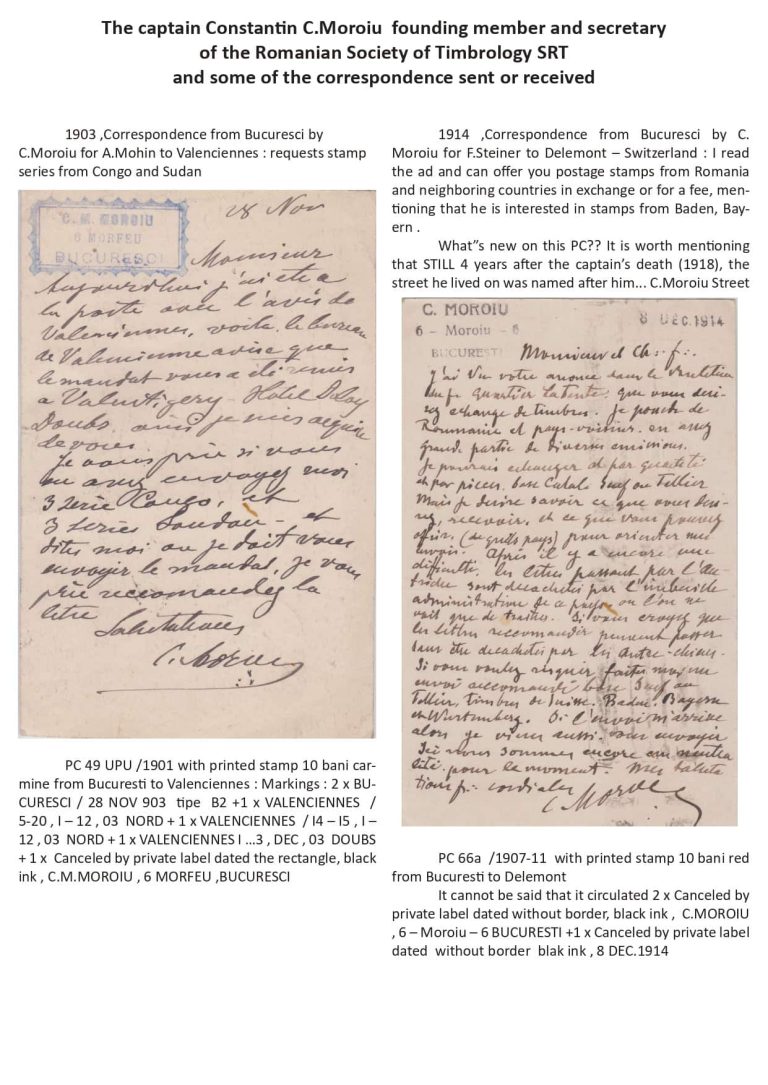 The captain Constantin C.Moroiu founding member and secretary
of the Romanian Society of Timbrology SRT
and some of the correspondence sent or received
1903 ,Correspondence from Bucuresci by
C.Moroiu for A.Mohin to Valenciennes : requests stamp
series from Congo and Sudan
C. M. MOROIU
6 MORFEU
BUCURESCI
28 Nov
Monsieur
Aujourdhui j'ai ete a
la poste avec l'avis de
Valenciennes, voila le bureau
de Valencienne avise que
le mandat vous a ete remis
a Valentigery - Hotel
Doubs
de vous
Je vous prie si vous
en avez envoyez moi
3 serie Congo, et
3 series Soudan - et
dites moi ou je doit vous
envoyer le mandat, je vous
prie reccomandez la
letre
Salutations
C. Moroiu
PC 49 UPU /1901 with printed stamp 10 bani car-
mine from Bucuresti to Valenciennes : Markings : 2 x BU-
CURESCI / 28 NOV 903 tipe B2 +1 x VALENCIENNES /
5-20 , I – 12 , 03 NORD + 1 x VALENCIENNES / I4 – I5 , I –
12 , 03 NORD + 1 x VALENCIENNES I ...3 , DEC , 03 DOUBS
+ 1 x Canceled by private label dated the rectangle, black
ink , C.M.MOROIU , 6 MORFEU ,BUCURESCI
1914 ,Correspondence from Bucuresci by C.
Moroiu for F.Steiner to Delemont – Switzerland : I read
the ad and can offer you postage stamps from Romania
and neighboring countries in exchange or for a fee, men-
tioning that he is interested in stamps from Baden, Bay-
ern .
What"s new on this PC?? It is worth mentioning
that STILL 4 years after the captain's death (1918), the
street he lived on was named after him... C.Moroiu Street
C. MOROIU
6 – Moroiu – 6
BUCURESTI
8 DEC.1914
Monsieur et Ch∴ f∴
J'ai vu votre anonce dans le
du f. Quartier la tente, que vous desi-
rez echange de timbres. Je possede
Roumanie et pays-voisins en assez
grande partie de diverses emissions.
Je pourais echanger et par quantité
et par pieces, base Catal. Senf ou Tellier
Mais je desire savoir ce que vous desi-
rez, recevoir, et ce que vous pouvez
offrir, (de quels pays) pour orienter mes
envois. Après il y a encore une
difficulté, les letres passant par l'Au-
triche sont decachetés par l'imbecille
administration de ce pays, ou l'on ne
voit que de traitres. Si vous croyez que
les lettres recomandés peuvent passer
sans etre decachetés par les
Si vous voulez risquer faites moi un
envoi reccomandé base Senf ou
Tellier, timbres de Suisse, Baden, Bayern
et Wurtemberg. Si l'envoi m'arrive
alors je viens aussi vous envoyer
Ici nous sommes encore en neutra
lité pour le moment. Mes saluta
tions f∴ cordiales
C. Moroiu
PC 66a /1907-11 with printed stamp 10 bani red
from Bucuresti to Delemont
It cannot be said that it circulated 2 x Canceled by
private label dated without border, black ink , C.MOROIU
, 6 – Moroiu – 6 BUCURESTI +1 x Canceled by private label
dated without border blak ink , 8 DEC.1914